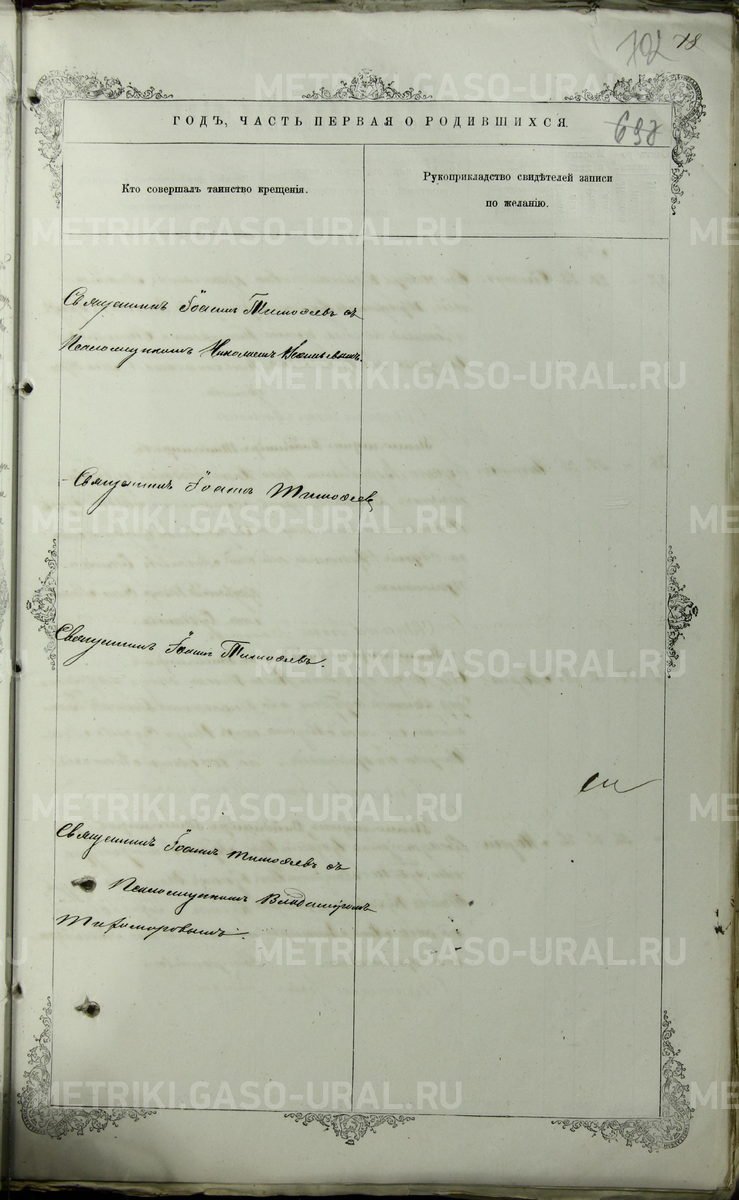 702 78
ГОДЪ, ЧАСТЬ ПЕРВАЯ О РОДИВШИХСЯ.
698
Кто совершалъ таинство крещенія.
Рукоприкладство свидѣтелей записи
по желанію.
Священникъ Іоаннъ Тимофѣевъ съ
Псаломщикомъ Николаемъ
Священникъ Іоаннъ Тимофѣевъ
Священникъ Іоаннъ Тимофѣевъ.
Священникъ Іоаннъ Тимофѣевъ съ
Псаломщикомъ Владиміромъ
Тихомировымъ.
METRIKI.GASO-URAL.RU